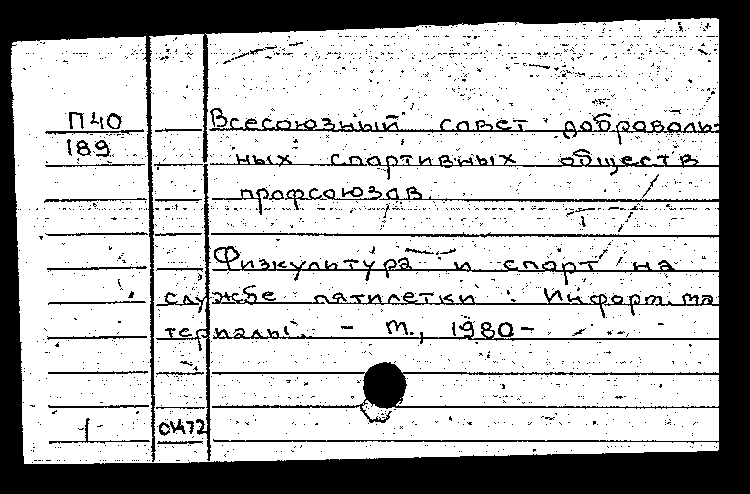 П40
189
Всесоюзный совет доброволь-
ных спортивных обществ
профсоюзов.
Физкультура и спорт на
службе пятилетки : Информ. ма
териалы. - М., 1980-
1 01472